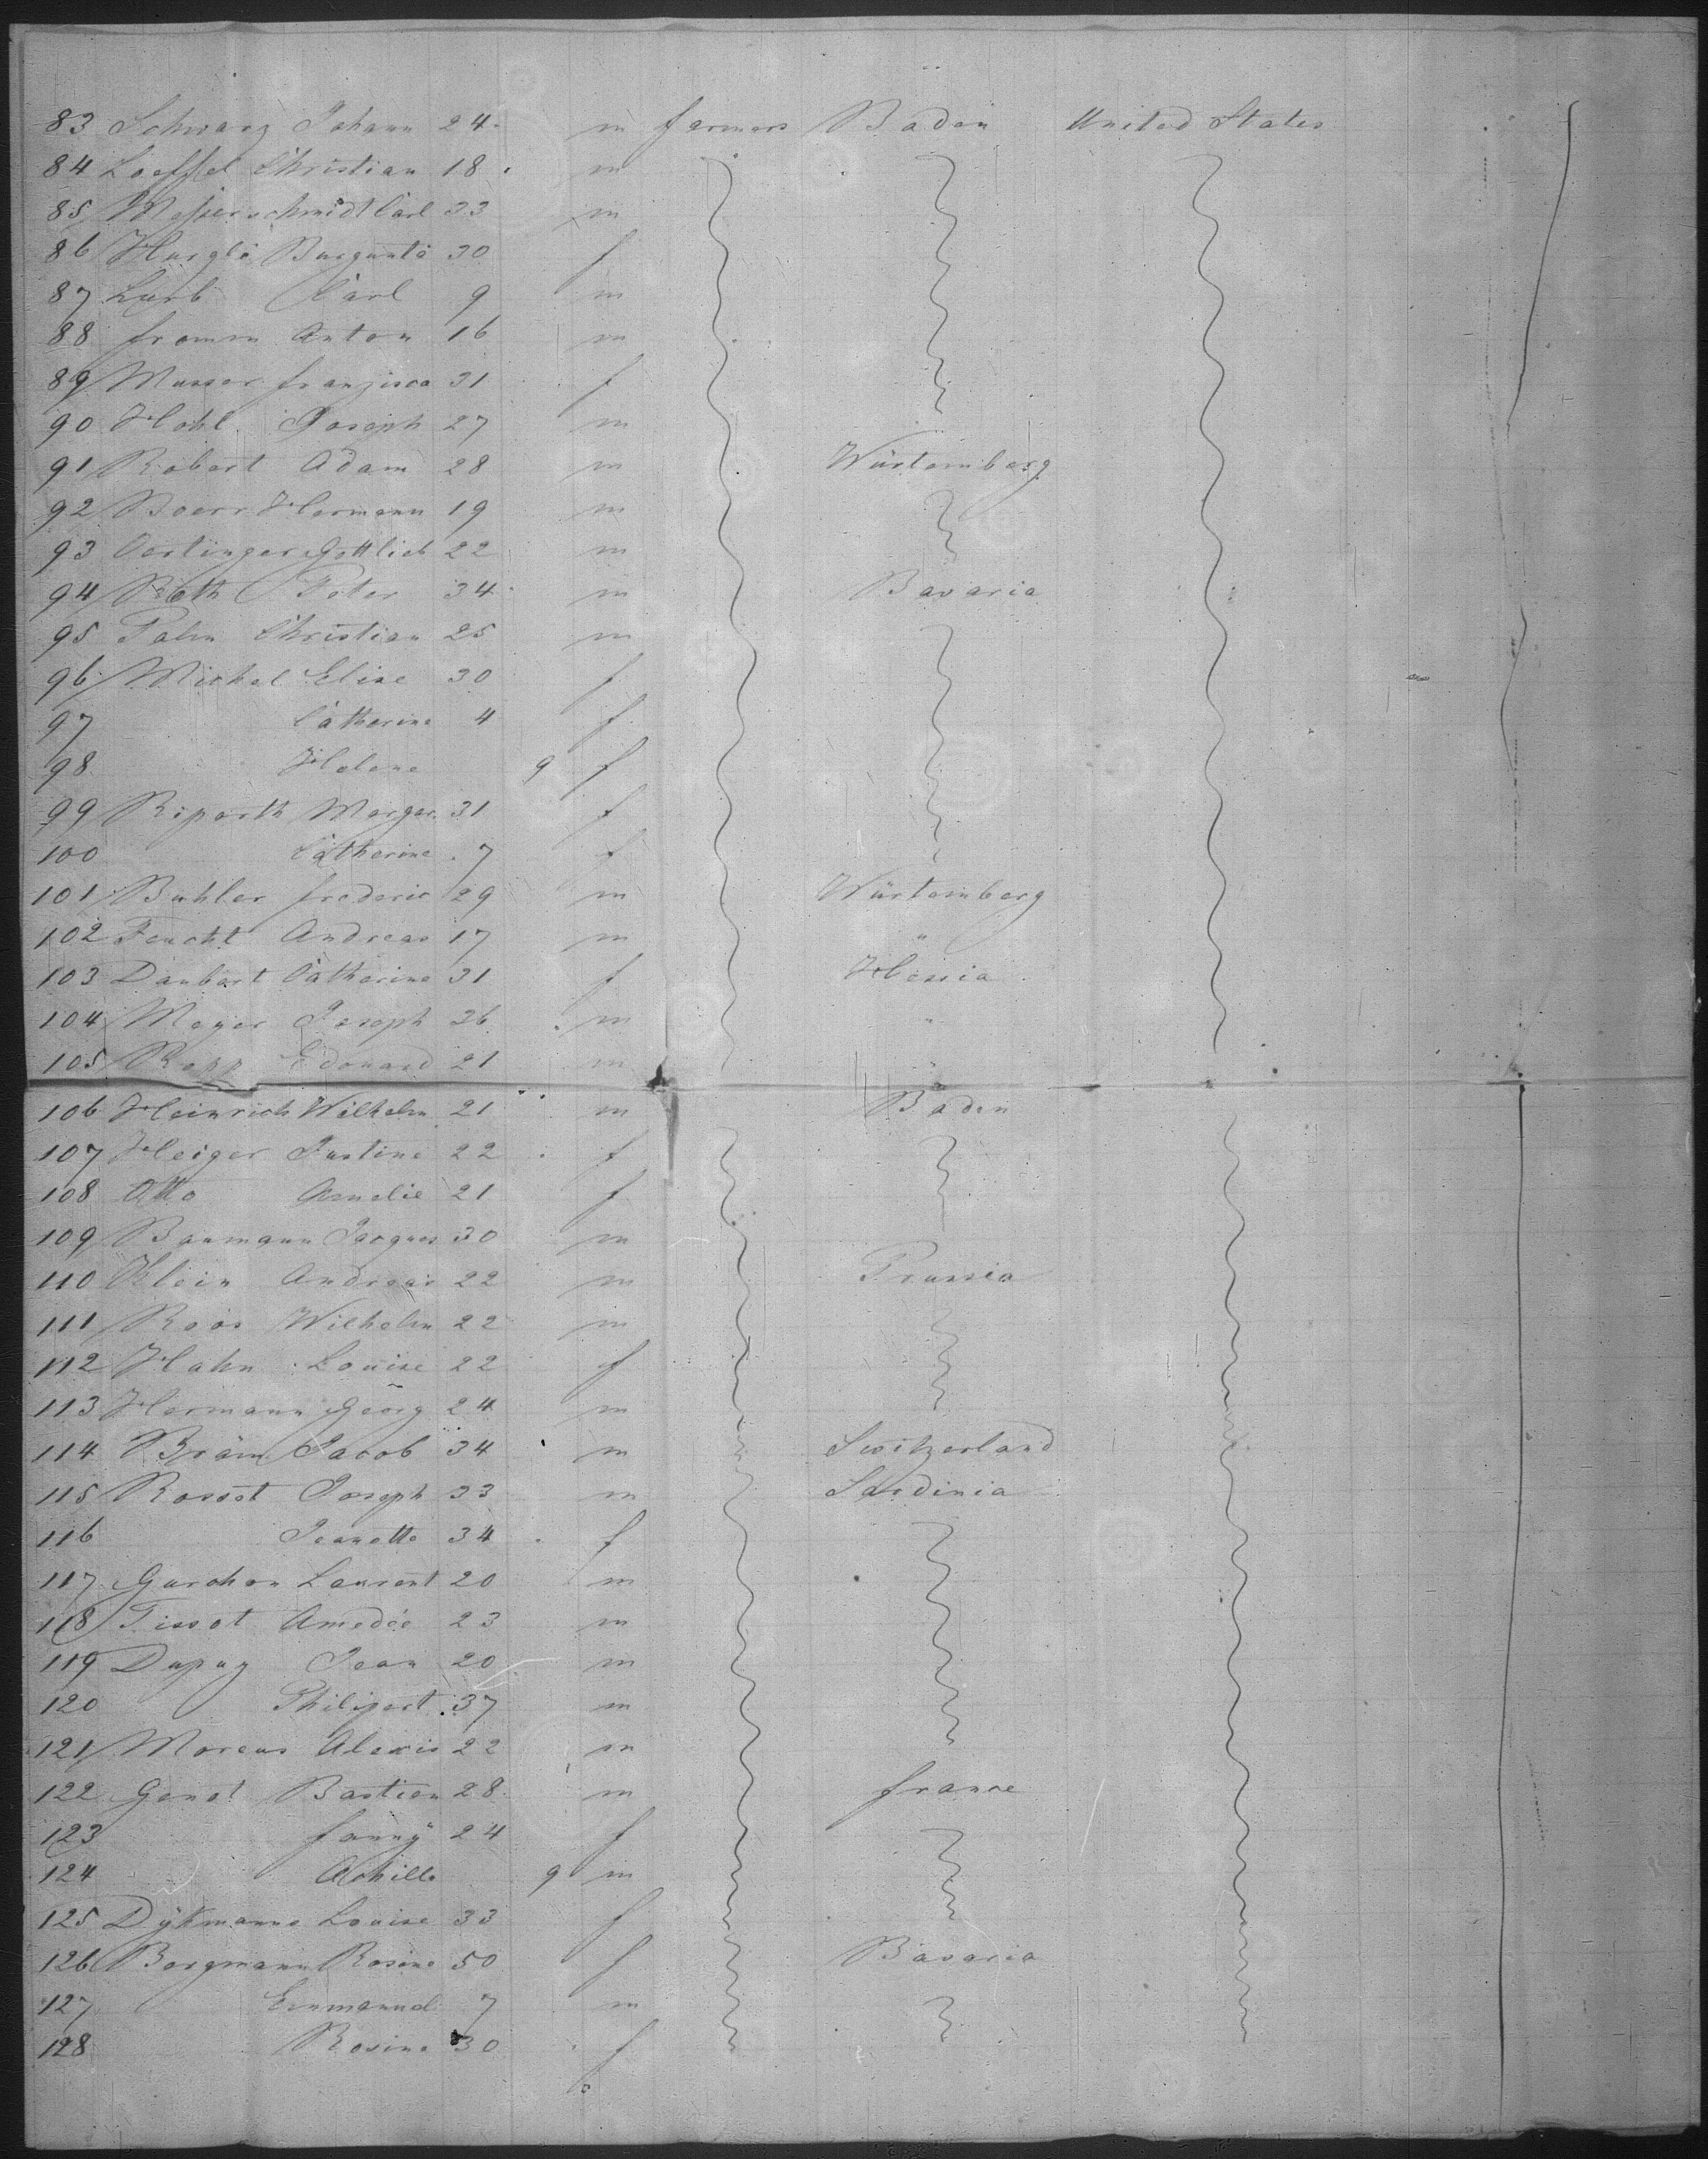 83 Schwarz Johann 24 m farmers Baden United States
84 Loeffel Christian 18 m
85 Messerschmidt Carl 33 m
86 30 f
87 Carl 9 m
88 fromm Anton 16 m
89 Musser franzisca 31 f
90 Hohl Joseph 27 m
91 Robert Adam 28 m Würtemberg
92 Boerr Hermann 19 m
93 Oertinger Gottlieb 22 m
94 Roth Peter 34 m Bavaria
95 Palm Christian 25 m
96 Michel Elise 30 f
97 Catherine 4 f
98 Helene 9 f
99 Riparth Margar. 31 f
100 Catherine 7 f
101 Buhler frederic 29 m Würtemberg
102 Feucht Andreas 17 m "
103 Daubert Catherine 31 f Hessia
104 Meyer Joseph 26 m "
105 Ropp Edouard 21 m "
106 Heinrich Wilhelm 21 m Baden
107 Heiger Justine 22 f
108 Otto Amelie 21 f
109 Baumann Jacques 30 m
110 Klein Andreas 22 m Prussia
111 Roos Wilhelm 22 m
112 Hahn Louise 22 f
113 Hermann Georg 24 m
114 Bräm Jacob 34 m Switzerland
115 Rosset Joseph 33 m Sardinia
116 Jeanette 34 f
117 Laurent 20 m
118 Tissot Amedée 23 m
119 Dupuy Jean 20 m
120 Philipert 37 m
121 Moreus Alexis 22 m
122 Genot Bastien 28 m france
123 fanny 24 f
124 Achille 9 m
125 Dykmanns Louise 33 f
126 Borgmann Rosine 50 f Bavaria
127 Emmanuel 7 m
128 Rosine 30 f